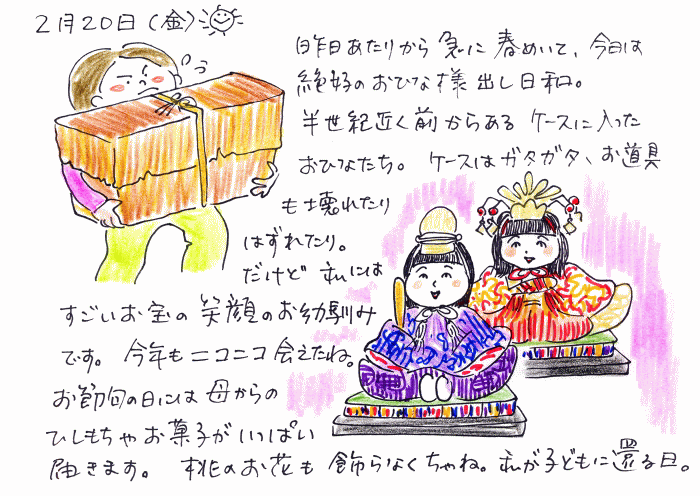 2月20日(金)
昨日あたりから 急に 春めいて、今日は
絶好のおひな様 出し日和。
半世紀近く前からある ケースに入った
おひなたち。 ケースはガタガタ、お道具
も壊れたり
はずれたり。
だけど 私には
すごいお宝の 笑顔のお幼馴み
です。 今年も ニコニコ 会えたね。
お節句の日には 母からの
ひしもちや お菓子が いっぱい
届きます。 桃のお花も 飾らなくちゃね。私が子どもに還る日。